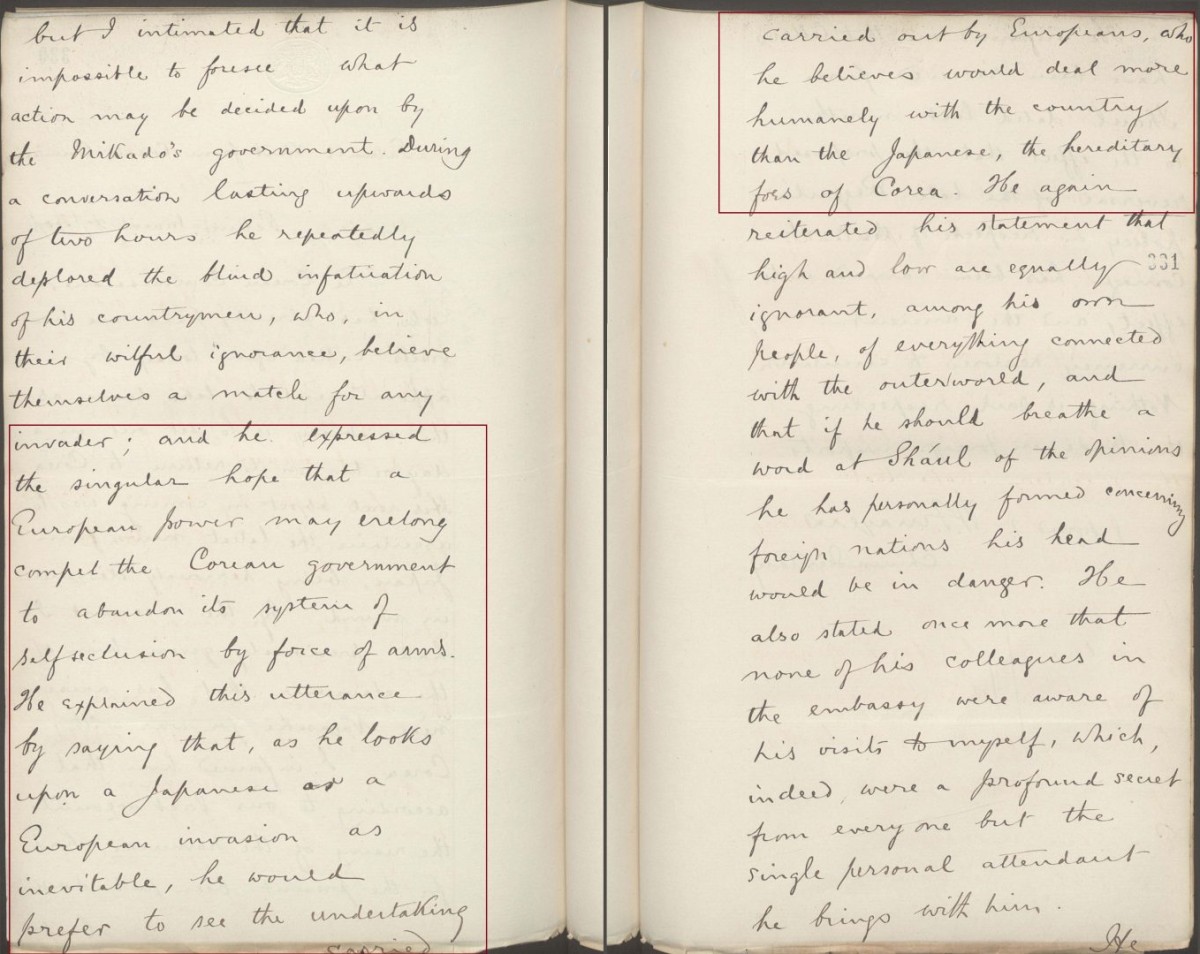 but I intimated that it is
impossible to foresee what
action may be decided upon by
the Mikado's government. During
a conversation lasting upwards
of two hours he repeatedly
deplored the blind infatuation
of his countrymen, who, in
their wilful ignorance, believe
themselves a match for any
invader; and he expressed
the singular hope that a
European power may erelong
compel the Corean government
to abandon its system of
self seclusion by force of arms.
He explained this utterance
by saying that, as he looks
upon a Japanese or a
European invasion as
inevitable, he would
prefer to see the undertaking
carried
carried out by Europeans, who
he believes would deal more
humanely with the country
than the Japanese, the hereditary
foes of Corea. He again
reiterated his statement that
high and low are equally
331
ignorant, among his own
people, of everything connected
with the outerworld, and
that if he should breathe a
word at Shäul of the opinions
he has personally formed concerning
foreign nations his head
would be in danger. He
also stated once more that
none of his colleagues in
the embassy were aware of
his visits to myself, which,
indeed, were a profound secret
from every one but the
single personal attendant
he brings with him.
He